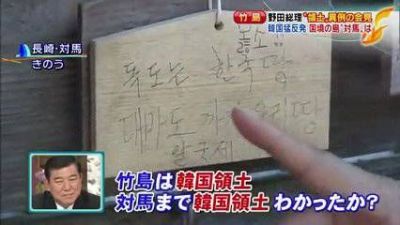 "竹"島 野田総理"領土"異例の会見
韓国猛反発 国境の島"対馬"は
長崎・対馬
きのう
독도는 한국땅
대마도 까지 우리땅
竹島は韓国領土
対馬まで韓国領土 わかったか?